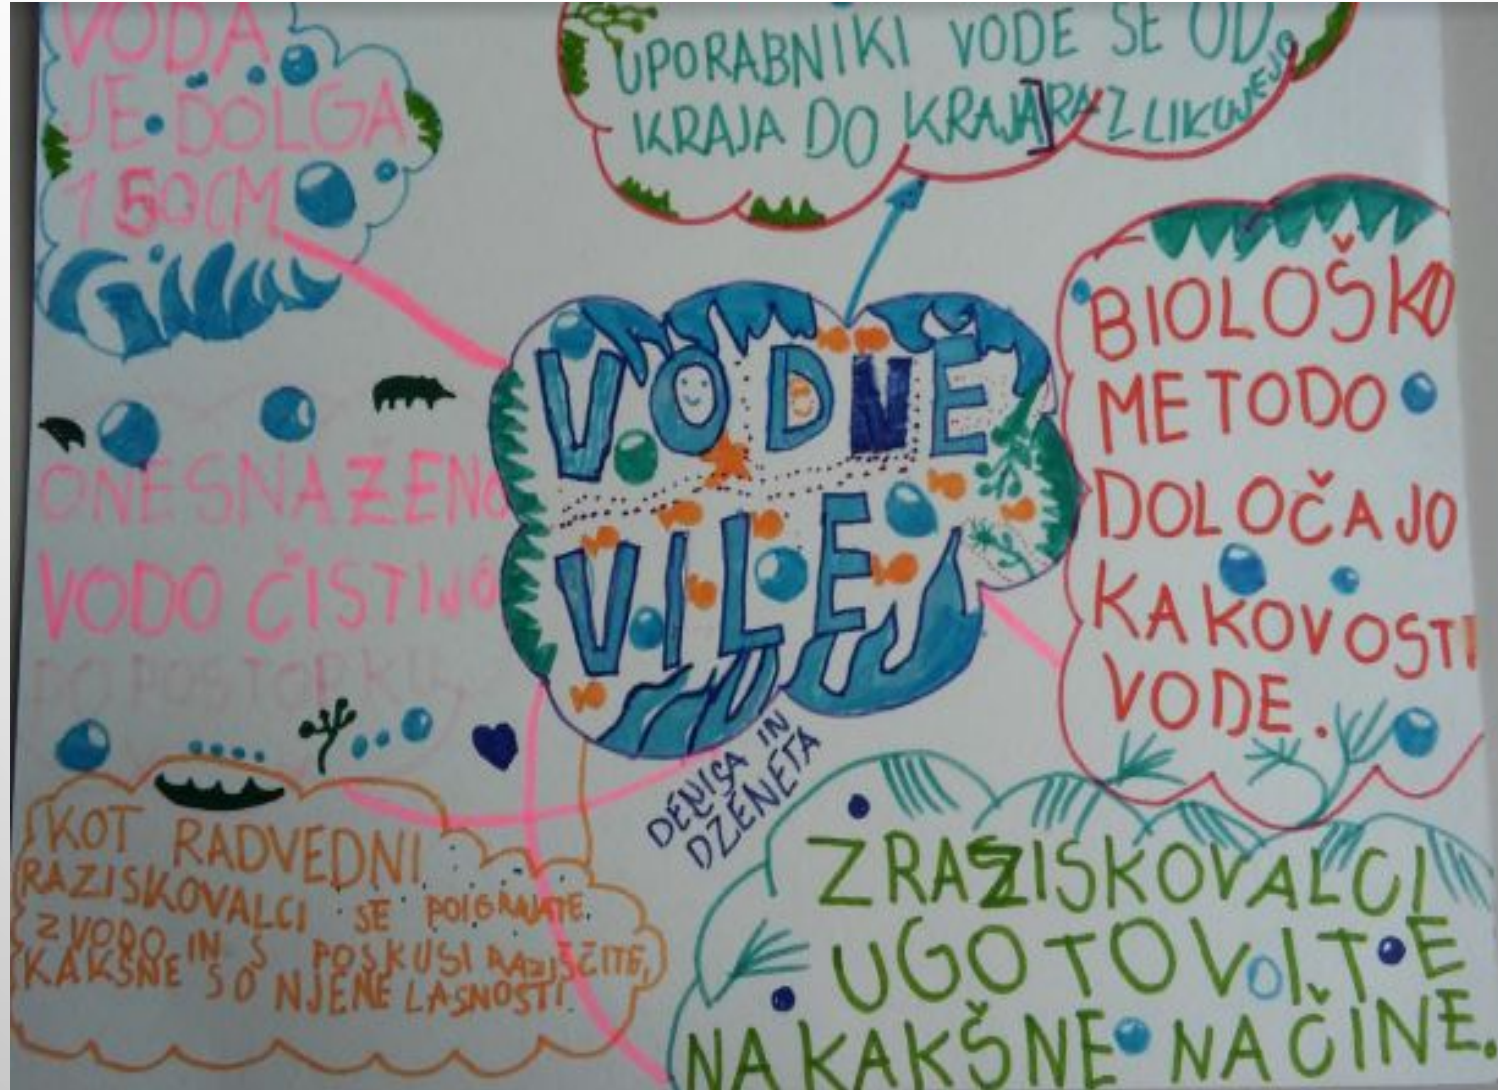 VODA
JE DOLGA
150CM
UPORABNIKI VODE SE OD
KRAJA DO KRAJA RAZLIKUJEJO
VODNE
VILE
DENISA IN
DŽENETA
BIOLOŠKO
METODO
DOLOČAJO
KAKOVOST
VODE.
ONESNAŽENO
VODO ČISTIJO
PO POSTOPKIH
KOT RADVEDNI
RAZISKOVALCI SE POIGRAJTE
Z VODO IN S POSKUSI RAZIŠČITE,
KAKŠNE SO NJENE LASNOSTI.
Z RAZISKOVALCI
UGOTOVITE
NA KAKŠNE NAČINE.